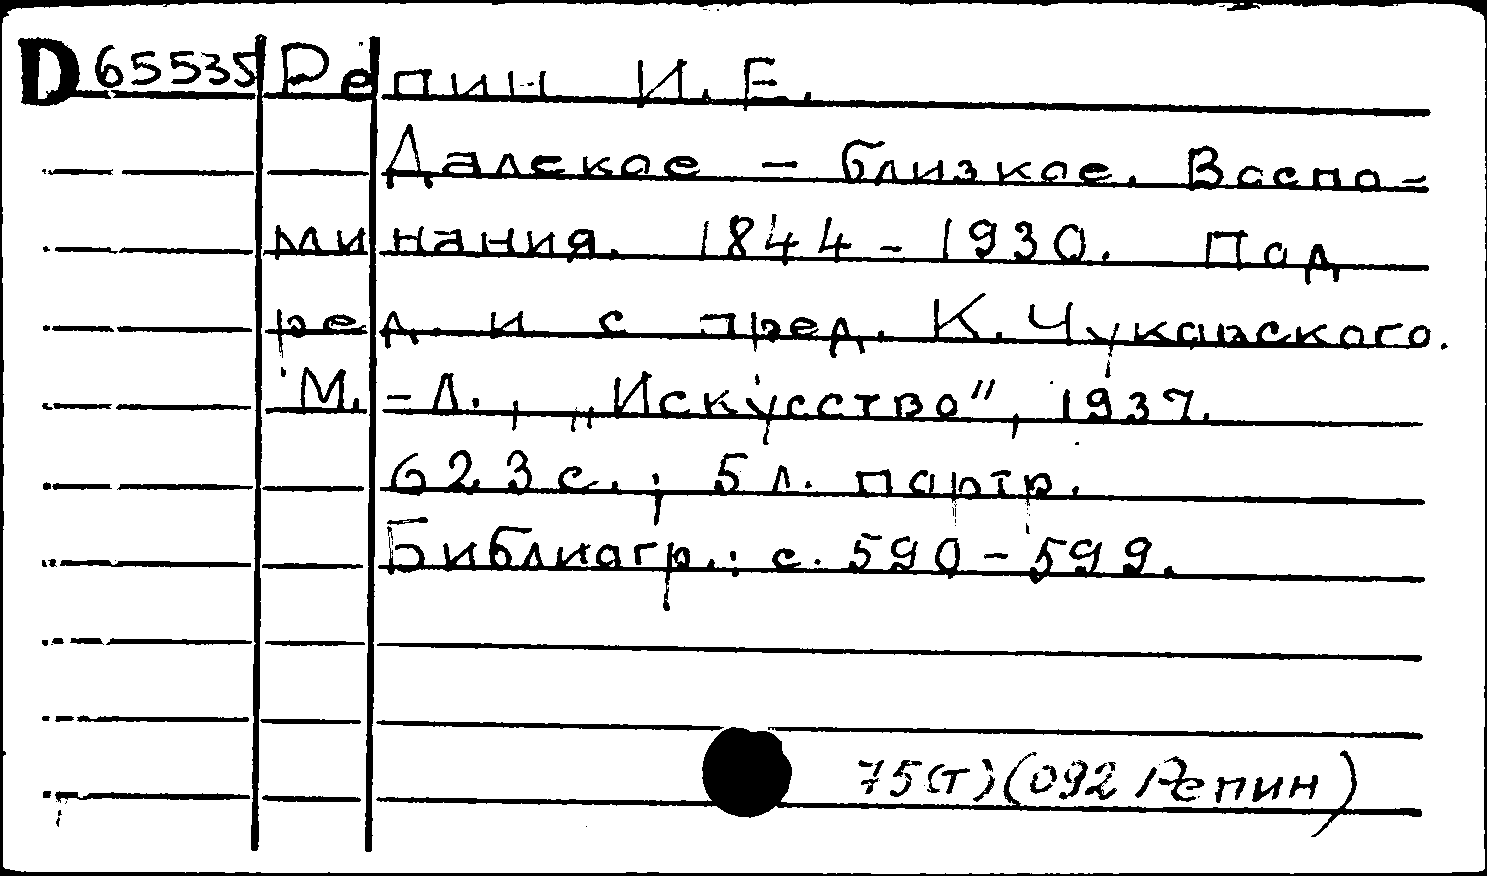 D 65535 Репин И. Е.
Далекое – близкое. Воспо-
минания. 1844 – 1930. Под
ред. и с пред. К. Чуковского.
М. – Л., „Искусство", 1937.
623 с.; 5 л. портр.
Библиогр.: с. 590 – 599.
75(т)(092 Репин)